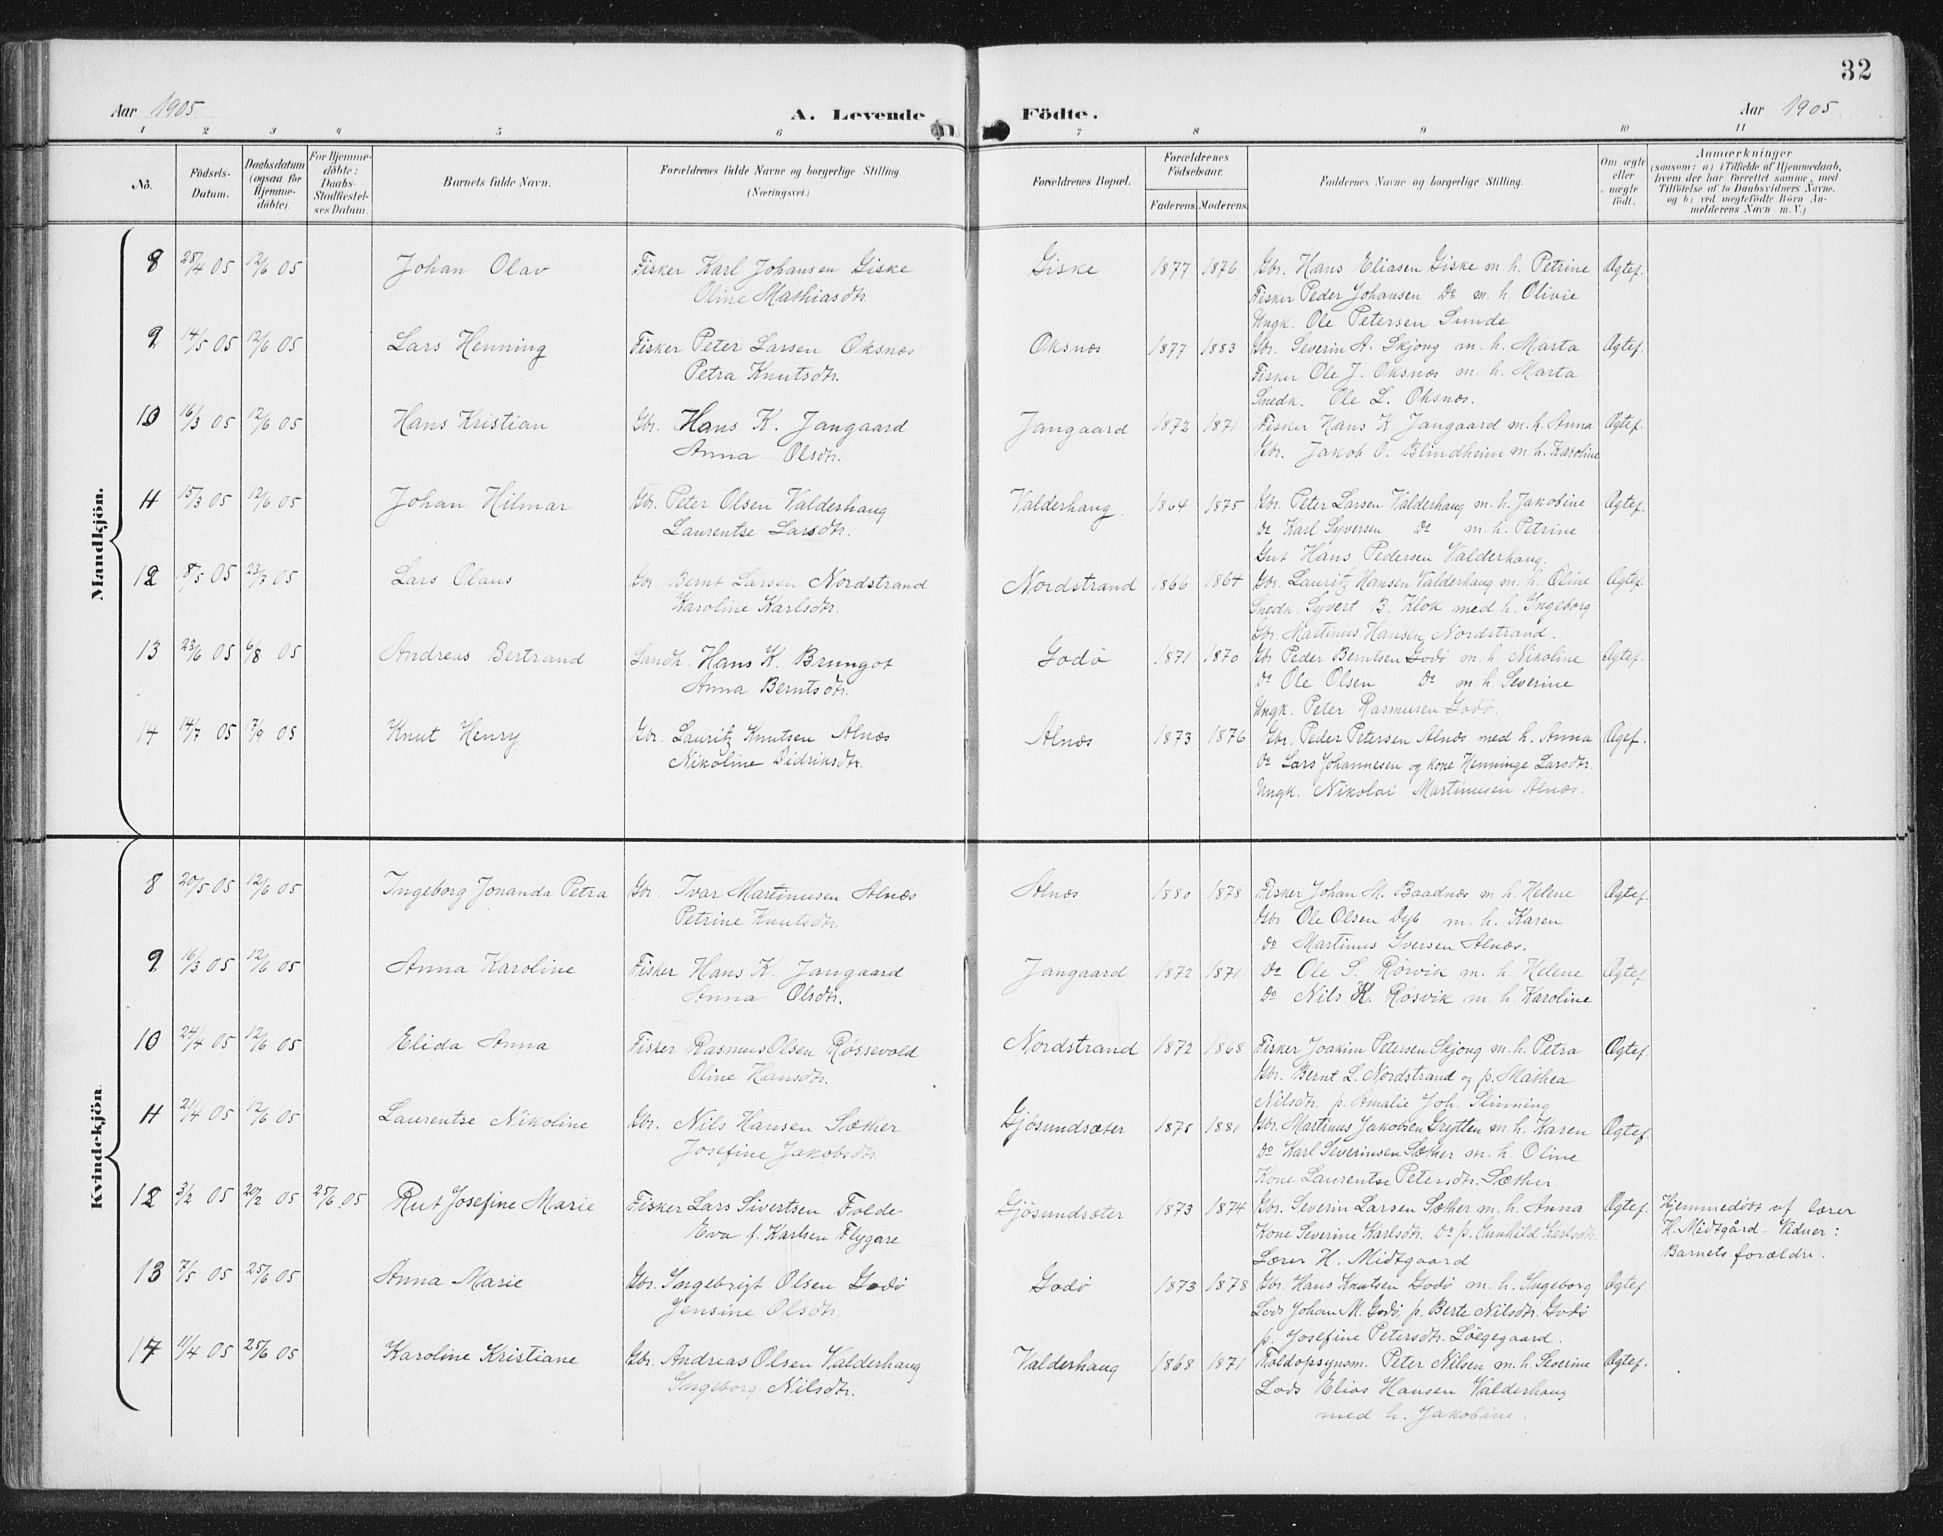 32
Aar 1905. A. Levende Födte. Aar 1905
1 2 3 4 5 6 7 8 9 10 11
No. Födsels-Datum. Daabsdatum (ogsaa for Hjemmedöbte). For Hjemmedöbte: Daabs-Stadfæstelses Datum. Barnets fulde Navn. Forældrenes fulde Navne og borgerlige Stilling. (Næringsvei.) Forældrenes Bopæl. Forældrenes Födselsaar. Faderens Moderens Faddernes Navne og borgerlige Stilling. Om ægte eller uægte födt. Anmærkninger (saasom: a) i Tilfælde af Hjemmedaab, hvem der har forrettet samme, med Tilföielse af to Daabsvidners Navne, og b) ved uægtefödte Börn Anmelderens Navn m. V.)
Mandkjön.
8 25/4 05 12/6 05 Johan Olav Fisker Karl Johansen Giske Giske 1877 1876 Gbr. Hans Eliasen Giske m. h. Petrine Ægtef.
Oline Mathiasdtr. Fisker Peder Johansen Do m. h. Olivie
Ungk. Ole Petersen Sunde
9 14/5 05 12/6 05 Lars Henning Fisker Peter Larsen Oksnæs Oksnæs 1877 1883 Gbr. Severin A. Skjong m. h. Marta Ægtef.
Petra Knutsdtr. Fisker Ole J. Oksnæs m. h. Marta
Snedk. Ole L. Oksnæs.
10 16/3 05 12/6 05 Hans Kristian Gbr. Hans K. Jangaard Jangaard 1872 1871 Fisker Hans K. Jangaard m. h. Anna Ægtef.
Anna Olsdtr. Gbr. Jakob O. Blindheim m. h. Karoline
11 15/3 05 12/6 05 Johan Hilmar Gbr. Peter Olsen Valderhaug Valderhaug. 1864 1875 Gbr. Peter Larsen Valderhaug m. h. Jakobine Ægtef.
Laurentse Larsdtr. Do Karl Syversen Do m. h. Petrine
Gut Hans Pedersen Valderhaug.
12 18/5 05 23/7 05 Lars Olaus Gbr. Bernt Larsen Nordstrand Nordstrand 1866 1864 Gbr. Lauritz Hansen Valderhaug m. h. Oline Ægtef.
Karoline Karlsdtr. Snedk. Syvert B. Klok med h. Ingeborg
Gbr. Martinus Hansen Nordstrand.
13 23/6 05 6/8 05 Andreas Bertrand Landh. Hans K. Brungot Godø 1871 1870 Gbr Peder Berntsen Godø m. h. Nikoline Ægtef.
Anna Berntsdtr. Do Ole Olsen Do m. h. Severine
Ungk. Peter Rasmusen Godø.
14 14/7 05 17/9 05 Knut Henry Gbr. Lauritz Knutsen Alnæs Alnæs 1873 1876 Gbr. Peder Petersen Alnæs med h. Anna Ægef.
Nikoline Didriksdtr. Do Lars Johannesen og kone Henninge Larsdtr.
Ungk. Nikolai Martinusen Alnæs.
Kvindekjön
8 20/5 05 12/6 05 Ingeborg Jonanda Petra Gbr. Ivar Martinusen Alnæs Alnæs 1880 1878 Fisker Johan M. Baadnæs m. h. Helene Ægtef.
Petrine Knutsdtr Gbr Ole Olsen Dyb m. h. Karen
Do Martinus Iversen Alnæs.
9 16/3 05 12/6 05 Anna Karoline Fisker Hans K. Jangaard Jangaard 1872 1871 Do Ole S. Rørvik m. h. Helene Ægtef
Anna Olsdtr. Do Nils K. Røsvik m. h. Karoline
10 24/4 05 12/6 05 Elida Anna Fisker Rasmus Olsen Røssevold Nordstrand 1872 1868 Fisker Joakim Petersen Skjong m. h. Petra Ægtef.
Oline Hansdtr. Gbr. Bernt L. Nordstrand og p. Mathea
Nilsdtr. p. Amalie Joh. Slinning
11 21/4 05 12/6 05 Laurentse Nikoline Gbr. Nils Hansen Sæther Gjøsundsæter 1875 1881 Gbr. Martinus Jakobsen Grytten m. h. Karen Ægtef.
Josefine Jakobsdtr. Do Karl Severinsen Sæther m. h. Oline
Kone Laurentse Petersdtr. Sæther
12 3/2 05 20/2 05 25/6 05 Rut Josefine Marie Fisker Lars Sivertsen Folde Gjøsundsæter 1873 1874 Gbr. Severin Larsen Sæther m. h. Anna Ægtef. Hjemmedøbt af lærer
Eva f. Karlsen Flygare Kone Severine Karlsdtr. Do p. Gunhild Karlsdtr. H. Midtgård. Vidner:
Lærer H. Midtgaard Barnets forældre.
13 7/5 05 25/6 05 Anna Marie Gbr. Ingebrigt Olsen Godø Godø 1873 1878 Gbr. Hans Knutsen Godø m. h. Ingeborg Ægtef.
Jensine Olsdtr. Lods Johan M. Godø, p. Berte Nilsdtr. Godø
p. Josefine Petersdtr. Løegegaard.
14 11/4 05 25/6 05 Karoline Kristiane Gbr. Andreas Olsen Valderhaug Valderhaug 1868 1871 Toldopsynsm. Peter Nilsen m. h. Severine Ægtef.
Ingeborg Nilsdtr. Lods Elias Hansen Valderhaug
med h. Jakobine.